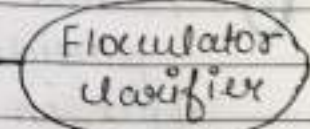 Flocculator
clarifier